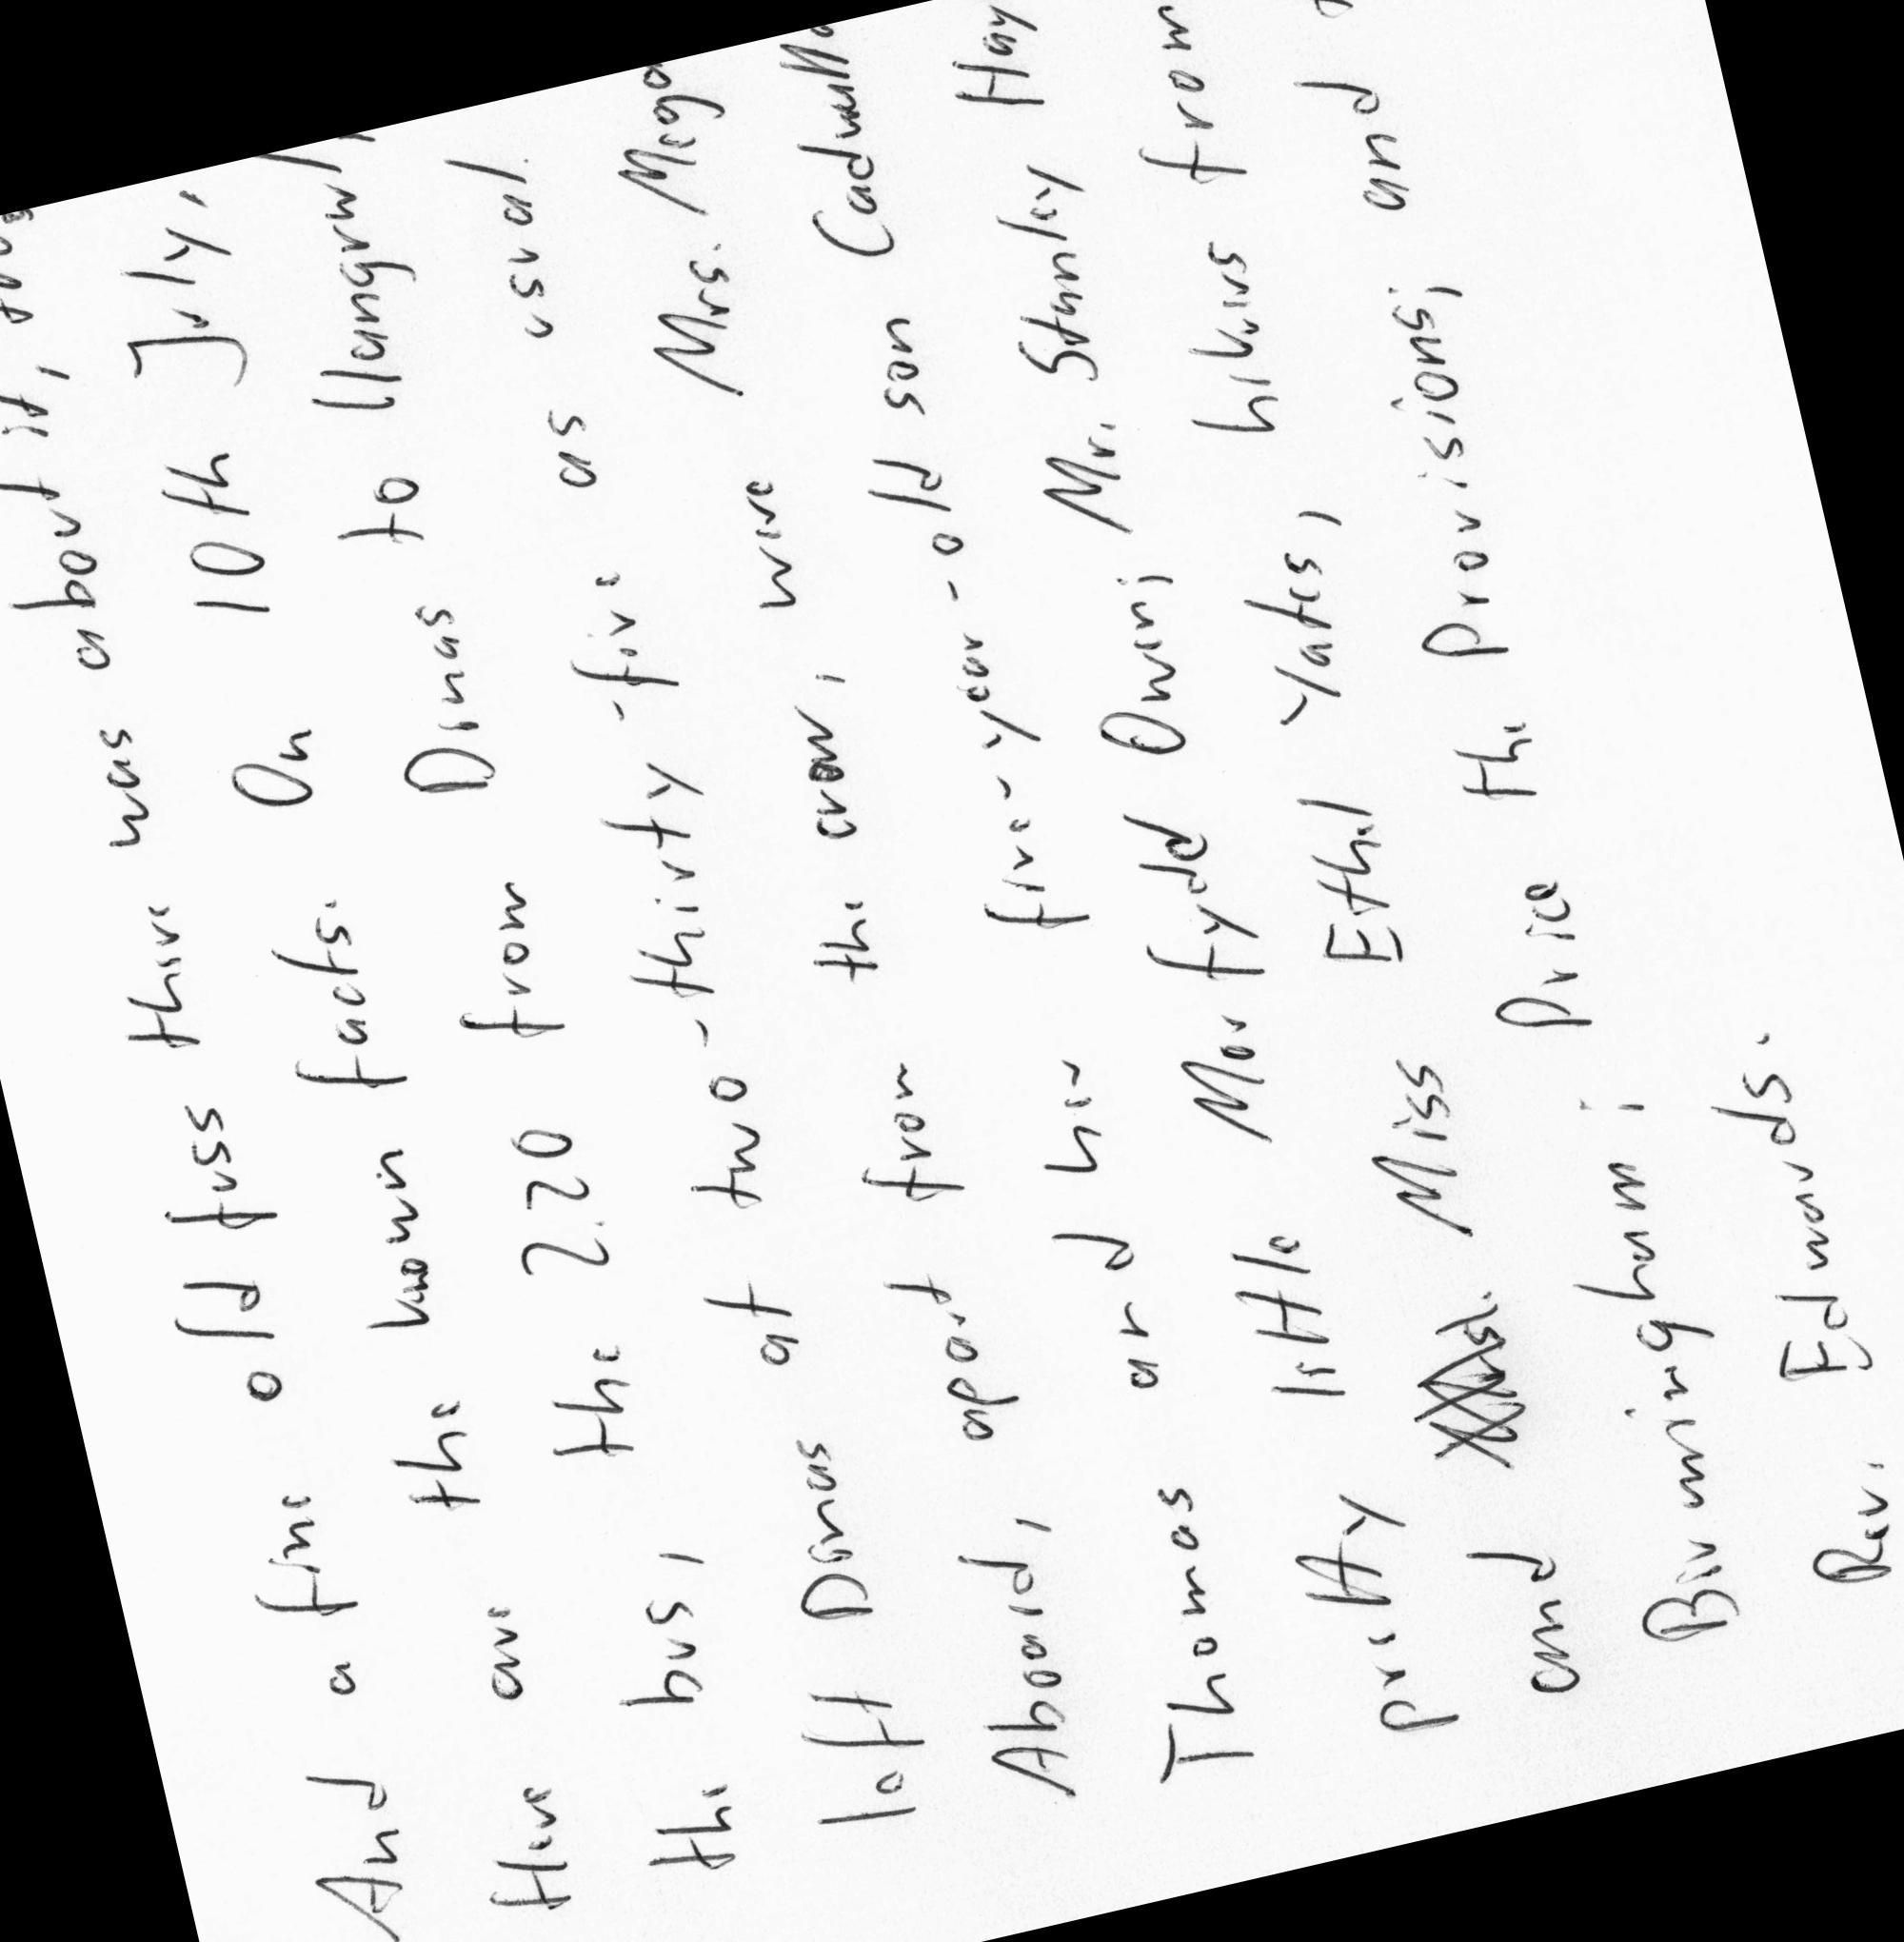 And a fine old fuss there was about it, too
Here are the known facts. On 10th July,
the bus, the 2.20 from Dinas to Llangrw
left Dinas at two-thirty-five as usual.
Aboard, apart from the crew, were Mrs. Megan
Thomas and her five-year-old son Cadwalla
pretty little Morfydd Owen; Mr. Stanley Hay
and Miss Ethel Yates, hikers from
Birmingham; Price the Provisions; and
Rev. Edwards.